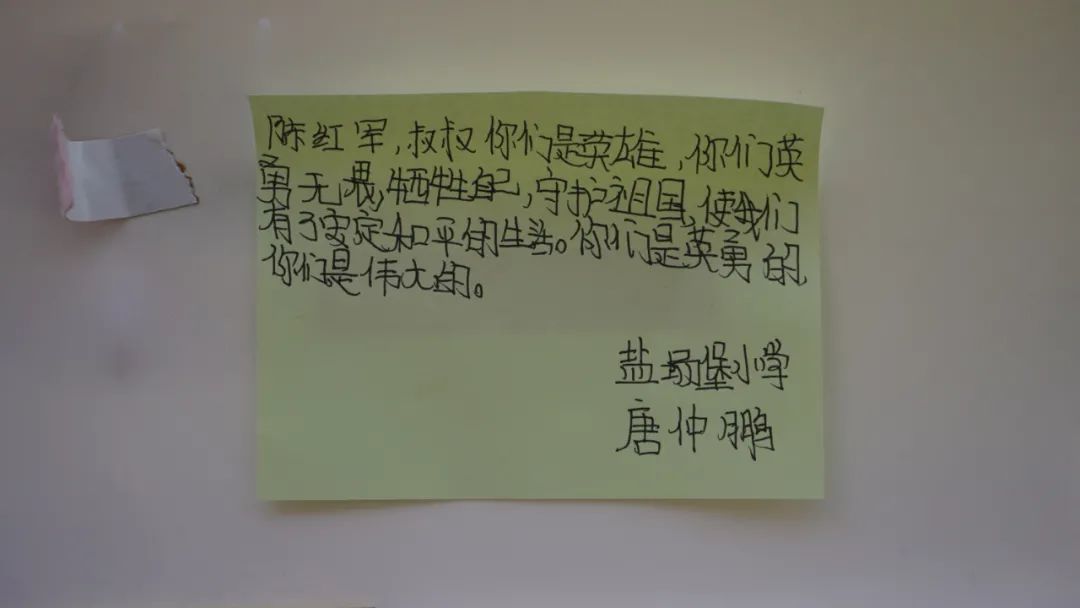 陈红军,叔叔你们是英雄,你们英
勇无畏,牺牲自己,守护祖国,使我们
有了安定和平的生活。你们是英勇的,
你们是伟大的。
盐场堡小学
唐仲鹏